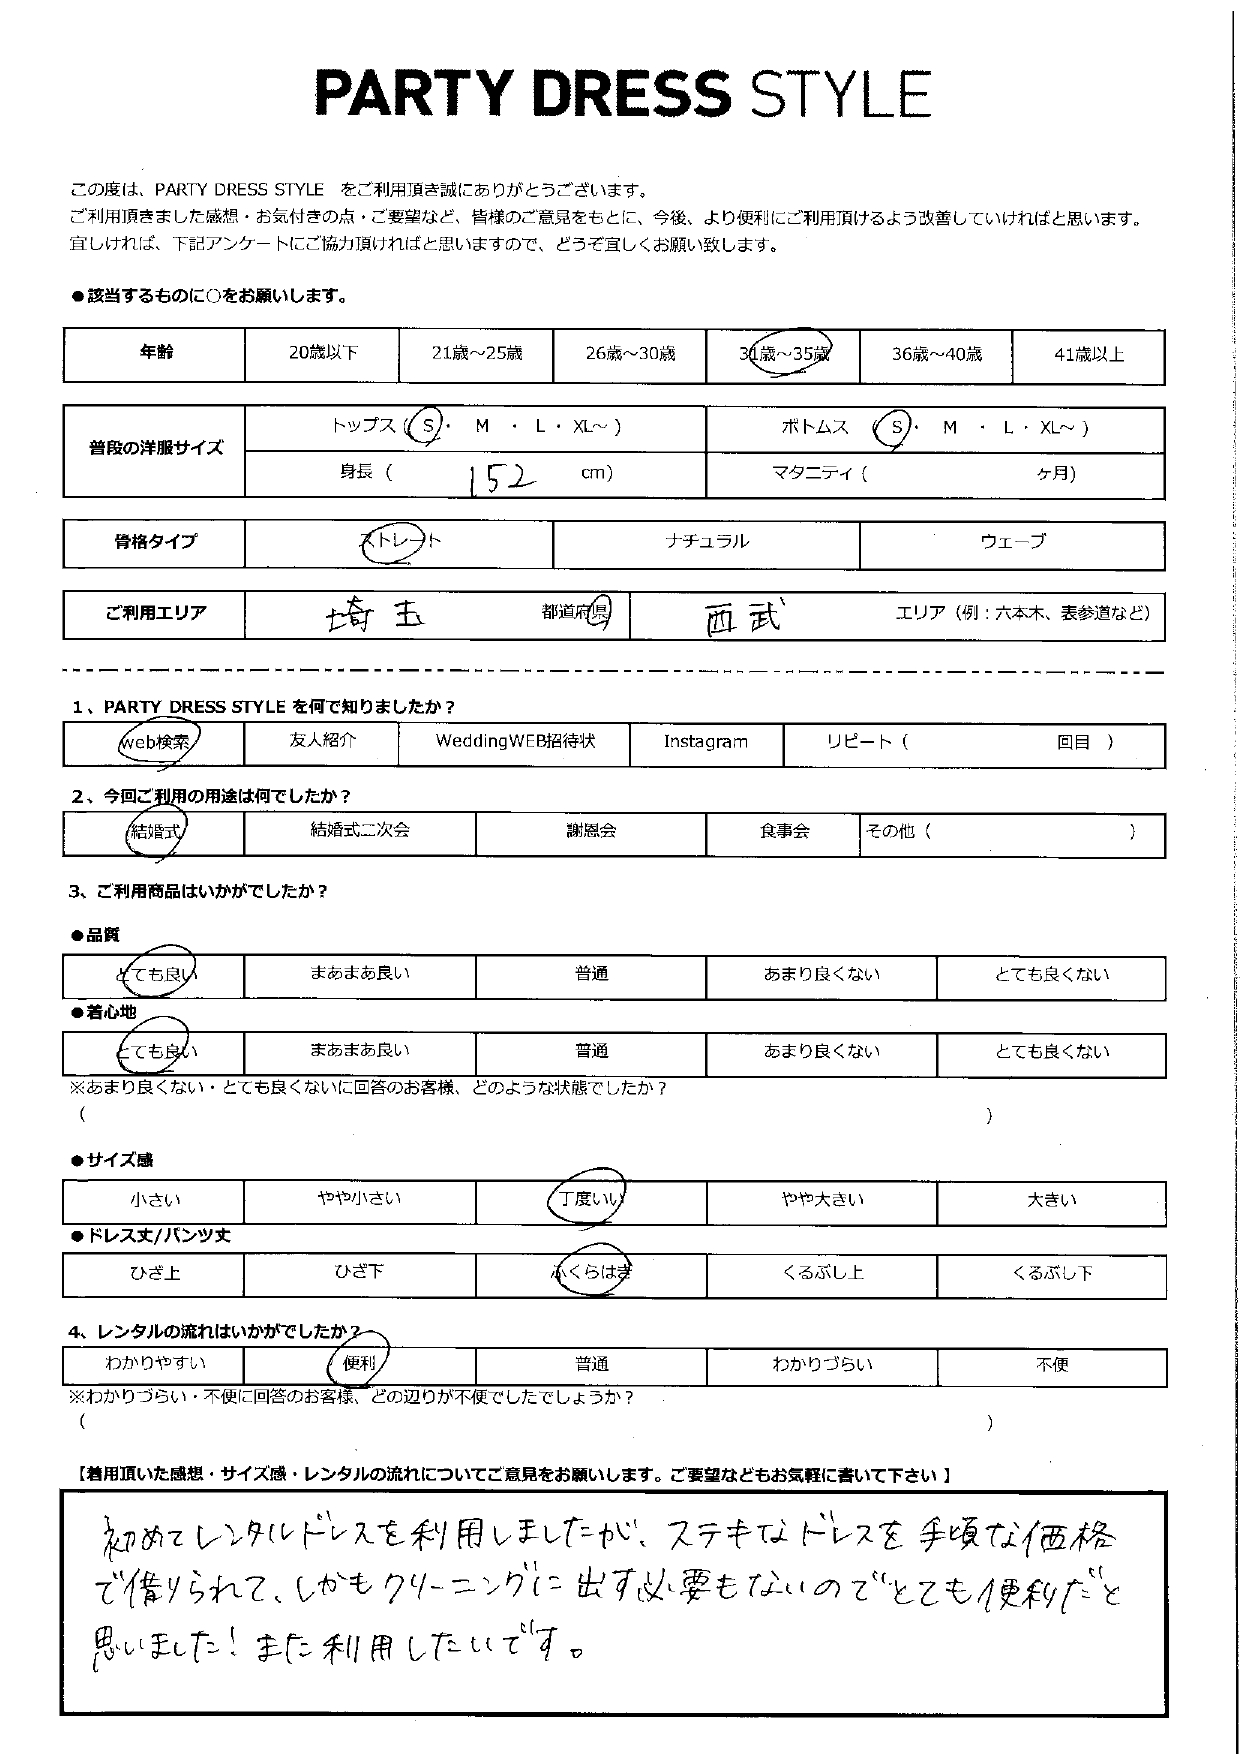 PARTY DRESS STYLE
この度は、PARTY DRESS STYLE をご利用頂き誠にありがとうございます。
ご利用頂きました感想・お気付きの点・ご要望など、皆様のご意見をもとに、今後、より便利にご利用頂けるよう改善していければと思います。
宜しければ、下記アンケートにご協力頂ければと思いますので、どうぞ宜しくお願い致します。
●該当するものに○をお願いします。
年齢 20歳以下 21歳～25歳 26歳～30歳 31歳～35歳 36歳～40歳 41歳以上
普段の洋服サイズ トップス（ S ・ M ・ L ・ XL～ ） ボトムス （ S ・ M ・ L ・ XL～ ）
身長（ 152 cm） マタニティ（ ヶ月）
骨格タイプ ストレート ナチュラル ウェーブ
ご利用エリア 埼玉 都道府県 西武 エリア（例：六本木、表参道など）
1、PARTY DRESS STYLE を何で知りましたか？
web検索 友人紹介 WeddingWEB招待状 Instagram リピート（ 回目 ）
2、今回ご利用の用途は何でしたか？
結婚式 結婚式二次会 謝恩会 食事会 その他（ ）
3、ご利用商品はいかがでしたか？
●品質
とても良い まあまあ良い 普通 あまり良くない とても良くない
●着心地
とても良い まあまあ良い 普通 あまり良くない とても良くない
※あまり良くない・とても良くないに回答のお客様、どのような状態でしたか？
（ ）
●サイズ感
小さい やや小さい 丁度いい やや大きい 大きい
●ドレス丈/パンツ丈
ひざ上 ひざ下 ふくらはぎ くるぶし上 くるぶし下
4、レンタルの流れはいかがでしたか？
わかりやすい 便利 普通 わかりづらい 不便
※わかりづらい・不便に回答のお客様、どの辺りが不便でしたでしょうか？
（ ）
【着用頂いた感想・サイズ感・レンタルの流れについてご意見をお願いします。ご要望などもお気軽に書いて下さい】
初めてレンタルドレスを利用しましたが、ステキなドレスを手頃な価格
で借りられて、しかもクリーニングに出す必要もないのでとても便利だと
思いました！また利用したいです。